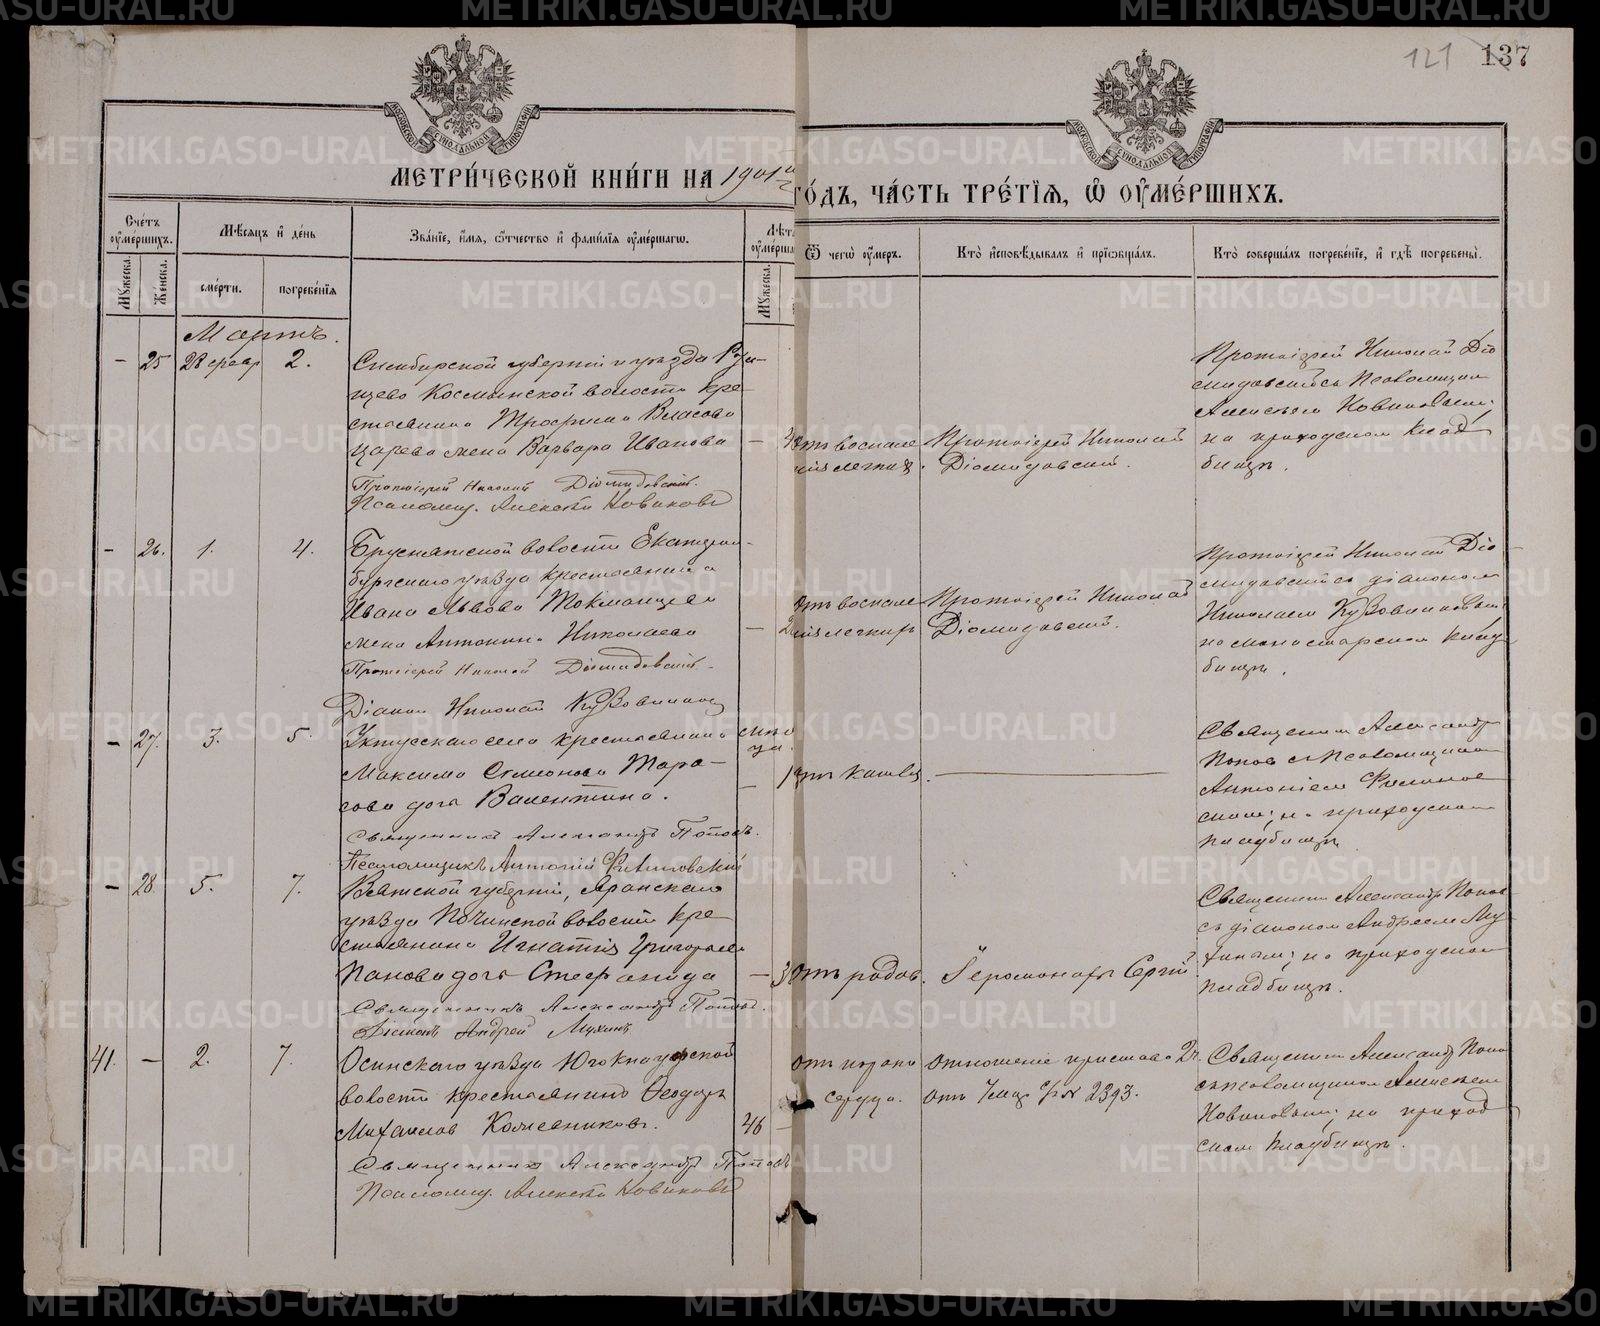 121 137
МЕТРИ́ЧЕСКОЙ КНИ́ГИ НА 1901 ГО́ДЪ, ЧА́СТЬ ТРЕ́ТІѦ, Ѽ ОУ҆МЕ́РШИХЪ.
Сче́тъ оу҆ме́ршихъ.
Мꙋ́жеска.
Же́нска.
Мѣ́сяцъ и҆ де́нь
сме́рти.
погребе́нїѧ
Зва́нїе, и҆́мѧ, ѻ҆́тчество и҆ фами́лїѧ оу҆ме́ршагѡ.
Лѣ́т
оу҆ме́рша
Мꙋ́жеска.
Ѿ чегѡ̀ оу҆́меръ.
Кто̀ и҆сповѣ́дывалъ и҆ прїѡбща́лъ.
Кто̀ соверша́лъ погребе́нїе, и҆ гдѣ̀ погребены̀.
Мартъ.
– 25 28 февр 2.
Симбирской губерніи и уѣзда
Космынской волости кре-
стьянина Трофима Власова
Царева жена Варвара Иванова
Протоіерей Николай Діомидовскій.
Псаломщ. Алексѣй Новиковъ
отъ воспале
нія легкихъ.
Протоіерей Николай
Діомидовскій.
Протоіерей Николай Діо
мидовскій съ псаломщикомъ
Алексѣемъ Новиковымъ;
на приходскомъ клад
бищѣ.
– 26. 1. 4.
Бруснятской волости Екатерин-
бургскаго уѣзда крестьянина
Ивана Львова Токманцева
жена Антонина Николаева
Протоіерей Николай Діомидовскій.
Діаконъ Николай Кузовниковъ
отъ воспале
нія легкихъ
Протоіерей Николай
Діомидовскій.
Протоіерей Николай Діо
мидовскій съ діакономъ
Николаемъ Кузовниковымъ
на монастырскомъ клад
бищѣ.
– 27. 3. 5.
Уктусскаго села крестьянина
Максима Семенова Тара-
сова дочь Валентина.
Священникъ Александръ Поповъ.
Псаломщикъ Антоній Филиповскій
отъ кашля.
Священникъ Александръ
Поповъ съ псаломщикомъ
Антоніемъ Филипов
скимъ; на приходскомъ
кладбищѣ.
– 28 5. 7.
Вятской губерніи, Яранскаго
уѣзда Починской волости кре
стьянина Игнатія Григорьева
Панова дочь Стефанида
Священникъ Александръ Поповъ.
Діаконъ Андрей Мухинъ
отъ родов.
Іеромонахъ Сергій.
Священникъ Александръ Попов
съ діакономъ Андреемъ Му
хинымъ; на приходскомъ
кладбищѣ.
41. – 2. 7.
Осинскаго уѣзда Югокнауфской
волости крестьянинъ Ѳеодоръ
Михаиловъ Кожевниковъ. 46 –
Священникъ Александръ Поповъ
Псаломщ. Алексѣй Новиковъ
отъ порока
сердца.
отношеніе пристава 2 ч.
отъ 7 мар. с/г № 2393.
Священникъ Александръ Попо
съ псаломщикомъ Алексѣемъ
Новиковымъ; на приход
скомъ кладбищѣ.
METRIKI.GASO-URAL.RU